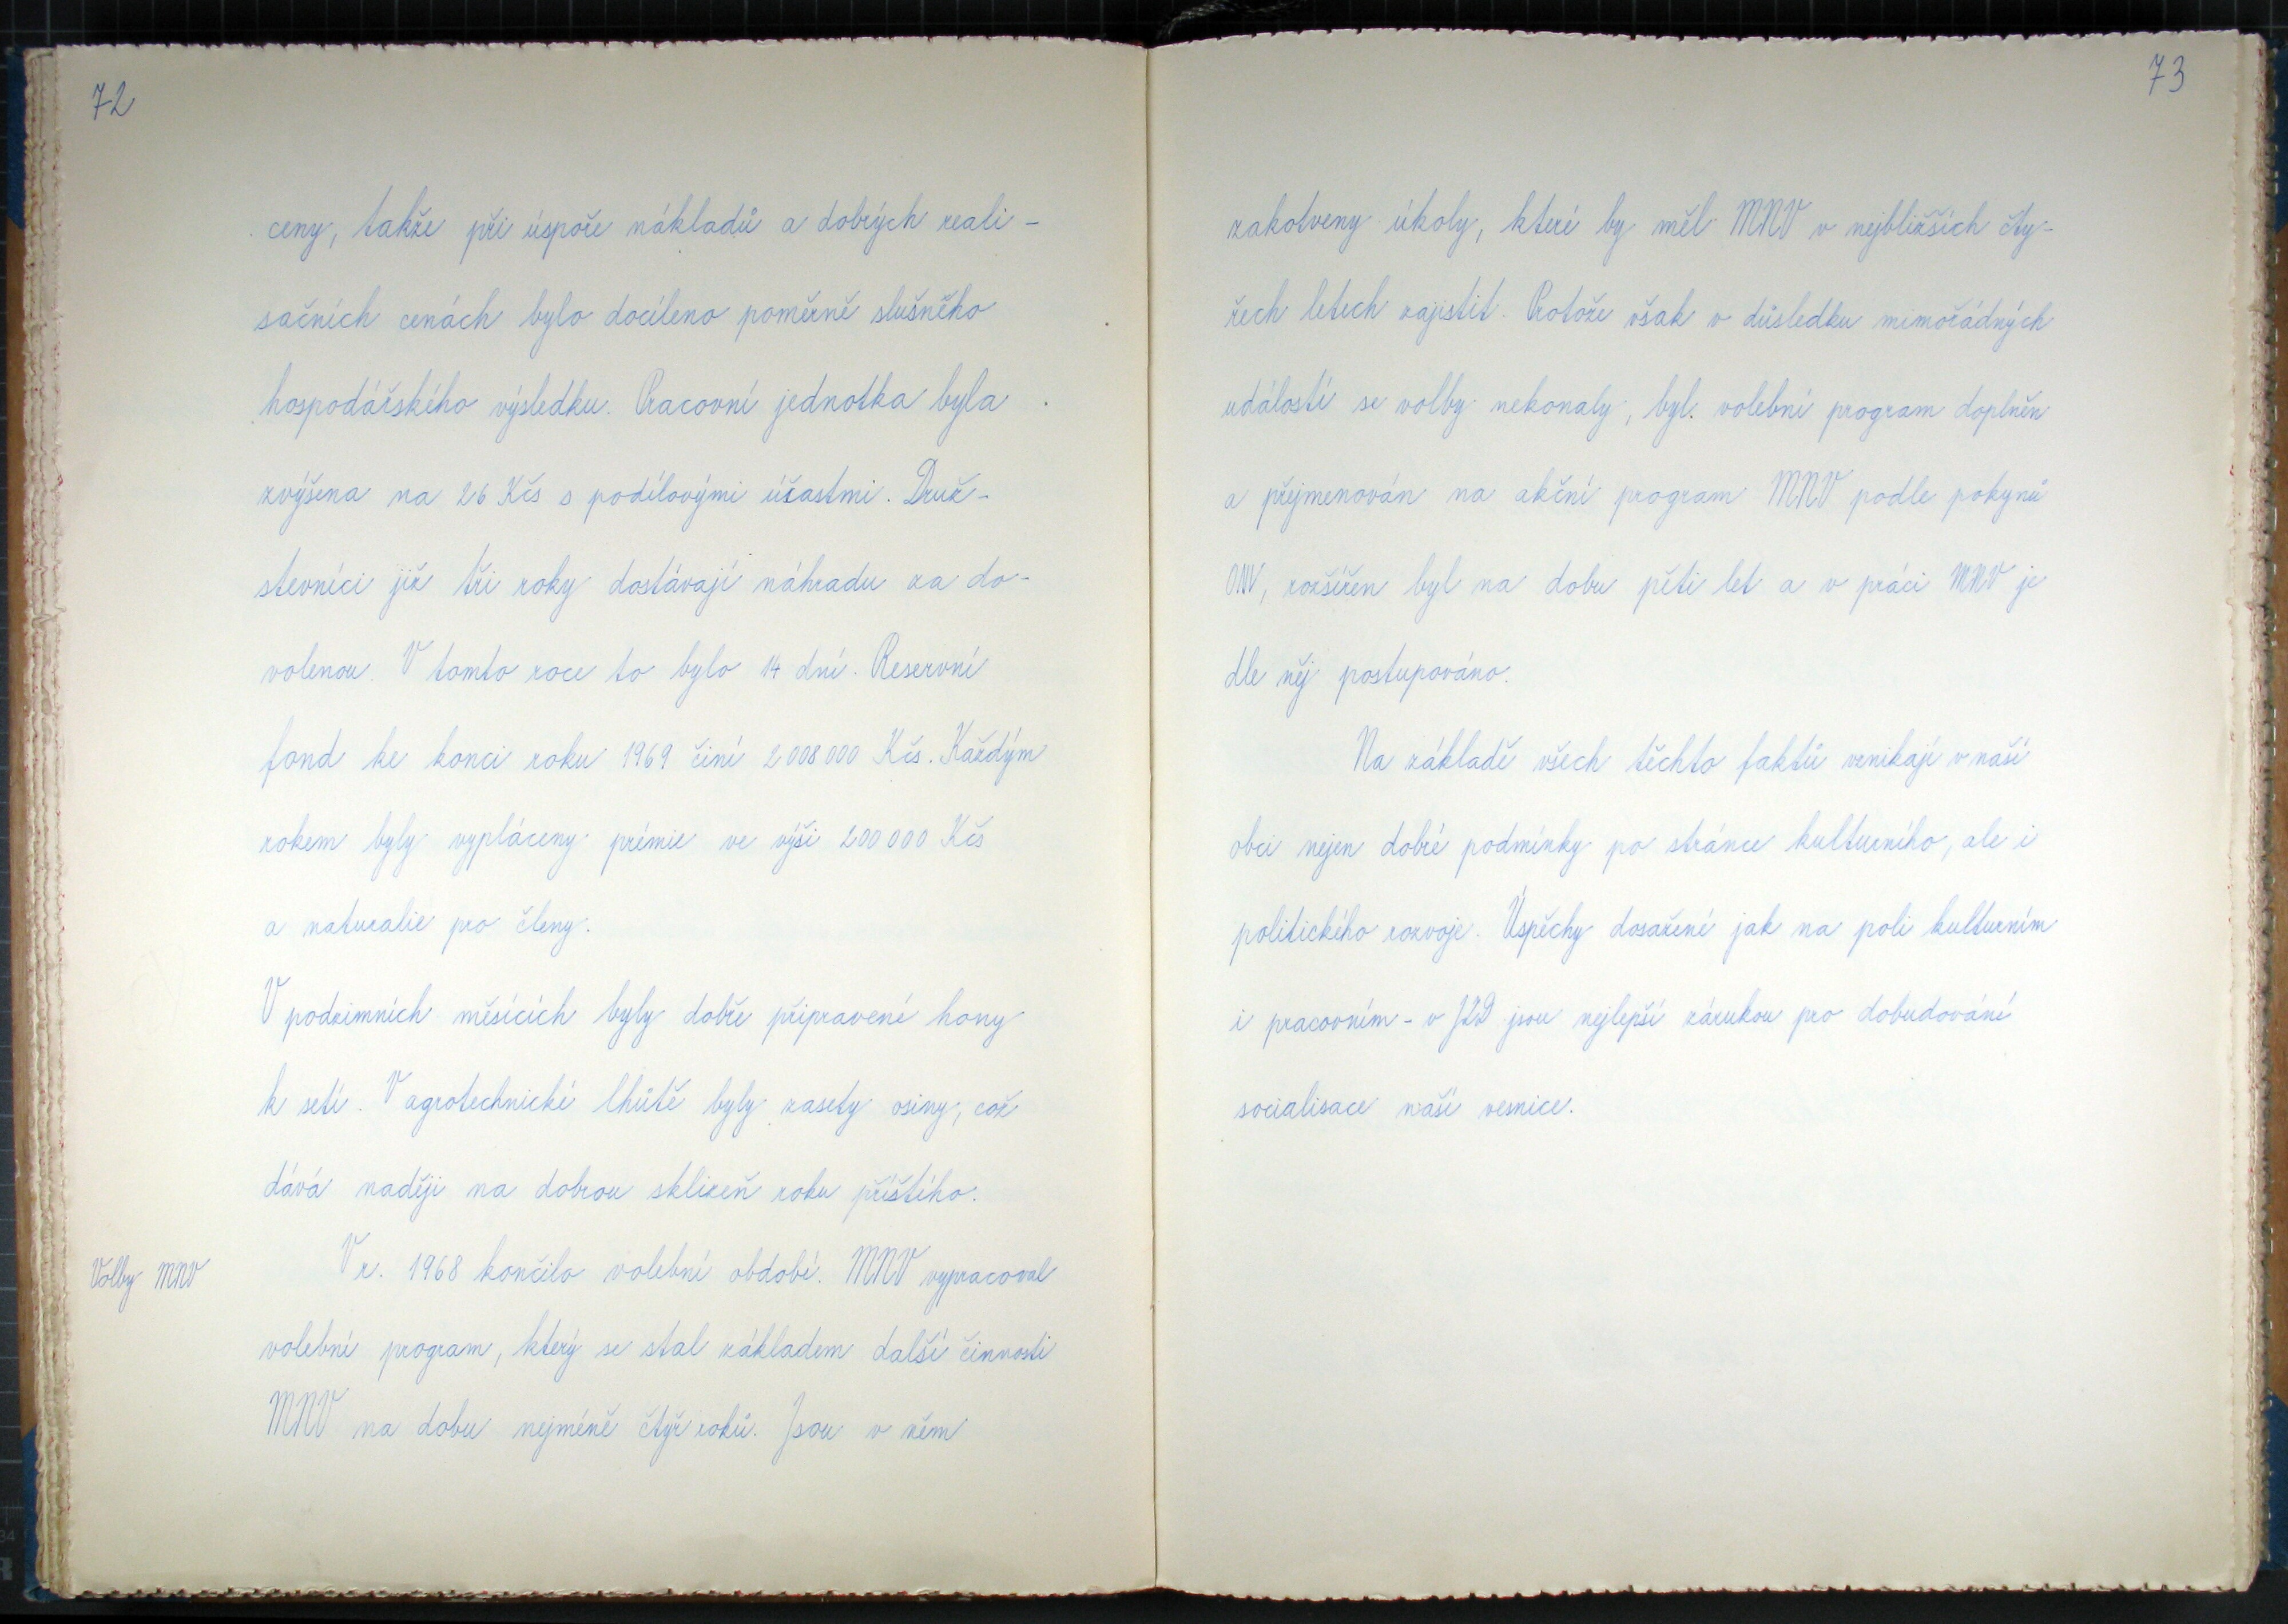 72
ceny, takže při úspoře nákladů a dobrých reali-
sačních cenách bylo docíleno poměrně slušného
hospodářského výsledku. Pracovní jednotka byla
zvýšena na 26 Kčs s podílovými účastmi. Druž-
stevníci již tři roky dostávají náhradu za do-
volenou. V tomto roce to bylo 14 dní. Reservní
fond ke konci roku 1969 činí 2 008 000 Kčs. Každým
rokem byly vypláceny prémie ve výši 200 000 Kčs
a naturalie pro členy.
V podzimních měsících byly dobře připravené hony
k setí. V agrotechnické lhůtě byly zasety osiny, což
dává naději na dobrou sklizeň roku příštího.
Volby MNV
V r. 1968 končilo volební období. MNV vypracoval
volební program, který se stal základem další činnosti
MNV na dobu nejméně čtyř roků. Jsou v něm
73
zakotveny úkoly, které by měl MNV v nejbližších čty-
řech letech zajistit. Protože však v důsledku mimořádných
událostí se volby nekonaly, byl volební program doplněn
a přejmenován na akční program MNV podle pokynů
ONV, rozšířen byl na dobu pěti let a v práci MNV je
dle něj postupováno.
Na základě všech těchto faktů vznikají v naší
obci nejen dobré podmínky po stránce kulturního, ale i
politického rozvoje. Úspěchy dosažené jak na poli kulturním
i pracovním - v JZD jsou nejlepší zárukou pro dobudování
socialisace naší vesnice.